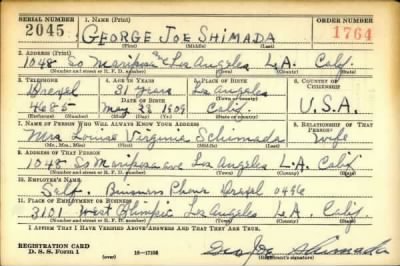 SERIAL NUMBER 1. Name (Print) ORDER NUMBER
2045 GEORGE JOE SHIMADA 1764
(First) (Middle) (Last)
2. Address (Print)
1048 So Mariposa Los Angeles L.A. Calif.
(Number and street or R. F. D. number) (Town) (County) (State)
3. Telephone 4. Age in Years 5. Place of Birth 6. Country of Citizenship
Drexel 31 Years Los Angeles
(Town or county)
Date of Birth
4685 May 23 1909 Calif. U.S.A.
(Exchange) (Number) (Mo.) (Day) (Yr.) (State or country)
7. Name of Person Who Will Always Know Your Address 8. Relationship of That Person
Mrs Louise Virginia Schimada Wife
(Mr., Mrs., Miss) (First) (Middle) (Last)
9. Address of That Person
1048 So Mariposa ave Los Angeles L.A. Calif.
(Number and street or R. F. D. number) (Town) (County) (State)
10. Employer's Name
Self. Business Phone Drexel 0496
11. Place of Employment or Business
3101 West Olympic Los Angeles L.A. Calif.
(Number and street or R. F. D. number) (Town) (County) (State)
I Affirm That I Have Verified Above Answers and That They Are True.
REGISTRATION CARD
D. S. S. Form 1 (over) 16—17105 Geo Joe Shimada
(Registrant's signature)